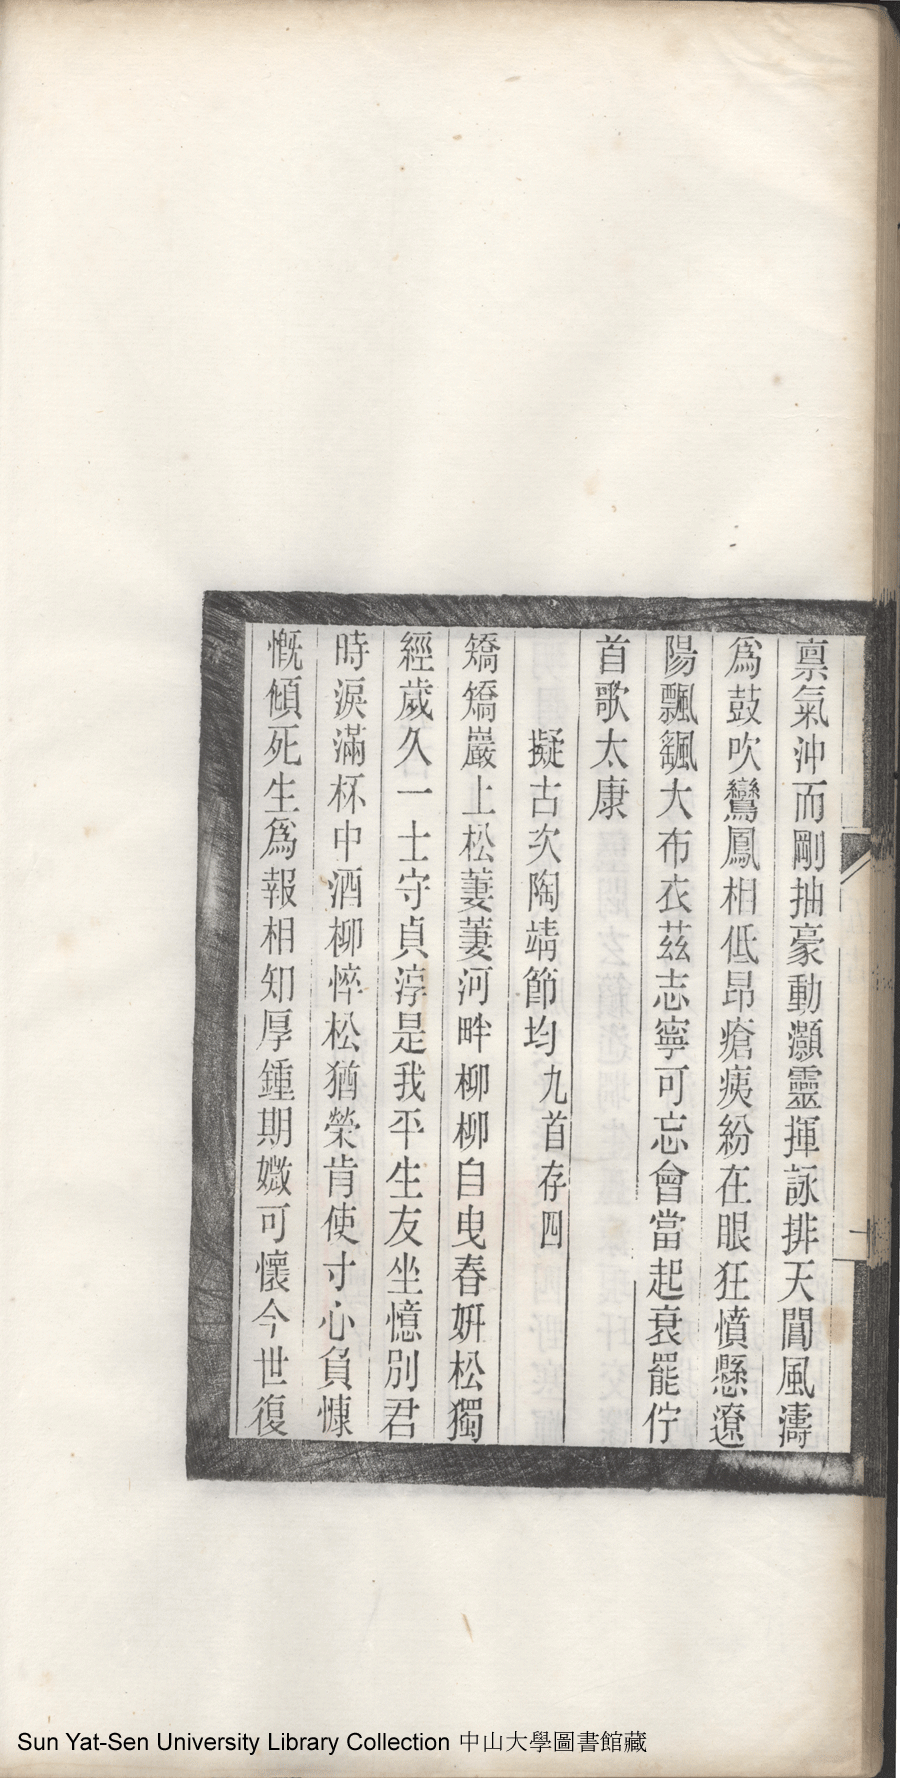 稟氣沖而剛抽豪動灝靈揮詠排天閶風濤
爲鼓吹鸞鳳相低昂瘡痍紛在眼狂憤懸遼
陽飄飄大布衣茲志寧可忘會當起衰罷佇
首歌太康
擬古次陶靖節均九首存四
矯矯巖上松萋萋河畔柳柳自曳春妍松獨
經歲久一士守貞淳是我平生友坐憶別君
時淚滿杯中酒柳悴松猶榮肯使寸心負慷
慨傾死生爲報相知厚鍾期嫐可懷今世復
一
Sun Yat-Sen University Library Collection 中山大學圖書館藏